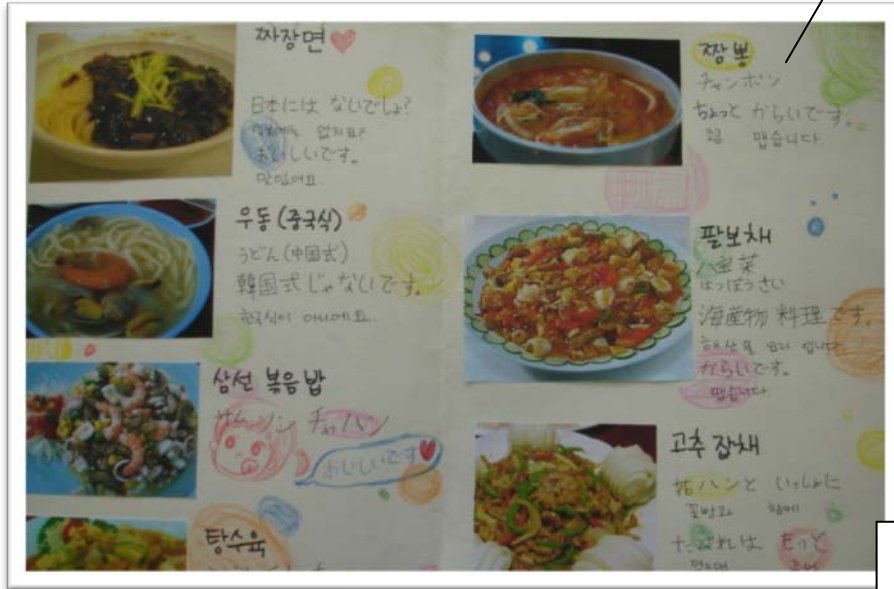 짜장면
日本には ないでしょ?
일본에는 없지요?
おいしいです。
맛있어요.
우동(중국식)
うどん(中国式)
韓国式じゃないです。
한국식이 아니에요.
삼선 볶음밥
サムソン チャハン
おいしいです
탕수육
짬뽕
チャンポン
ちょっと からいです。
좀 맵습니다.
팔보채
八宝菜
はっぽうさい
海産物 料理です。
해산물 요리 입니다.
からいです。
맵습니다.
고추 잡채
花ハンと いっしょに
꽃빵과 함께
たべれは もっと